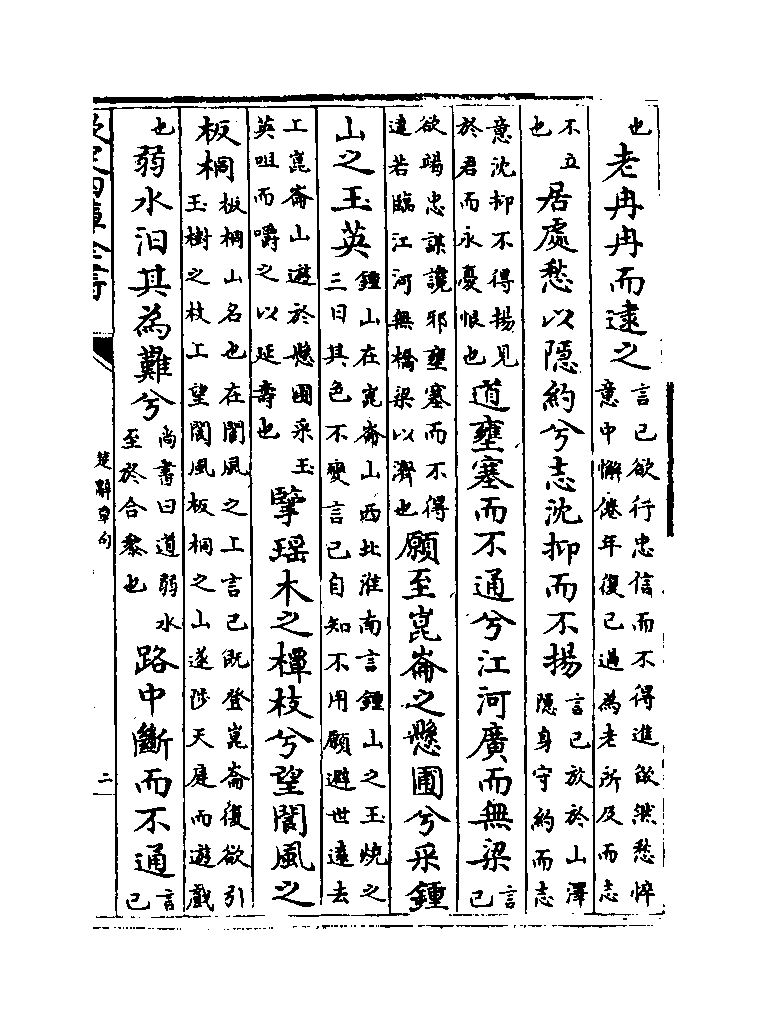 也老冉冉而逮之言己欲行忠信而不得進欲然愁悴意中懈倦年復已過為老所及而志
不立也居處愁以隱約兮志沈抑而不揚言己放於山澤隱身守約而志
意沈抑不得揚見於君而永憂恨也道壅塞而不通兮江河廣而無梁言己
欲竭忠謀讒邪壅塞而不得達若臨江河無橋梁以濟也願至崑崙之懸圃兮采鍾
山之玉英鍾山在崑崙山西北淮南言鍾山之玉燒之三日其色不變言己自知不用願避世遠去
上崑崙山遊於懸圃采玉英咀而嚼之以延壽也擥瑶木之橝枝兮望閬風之
板桐板桐山名也在閬風之上言己既登崑崙復欲引玉樹之枝上望閬風板桐之山遂陟天庭而遊戲
也弱水汩其為難兮尚書曰道弱水至於合黎也路中斷而不通言己
欽定四庫全書
楚辭章句
二